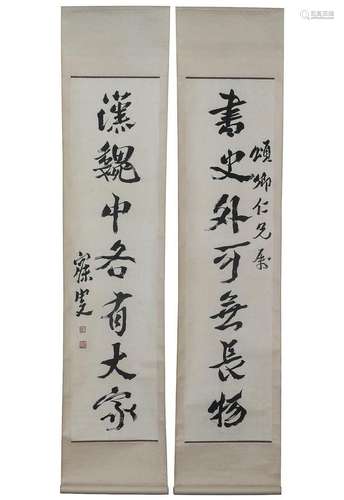 頌卿仁兄屬
書史外可無長物
漢魏中各有大家
寐叟